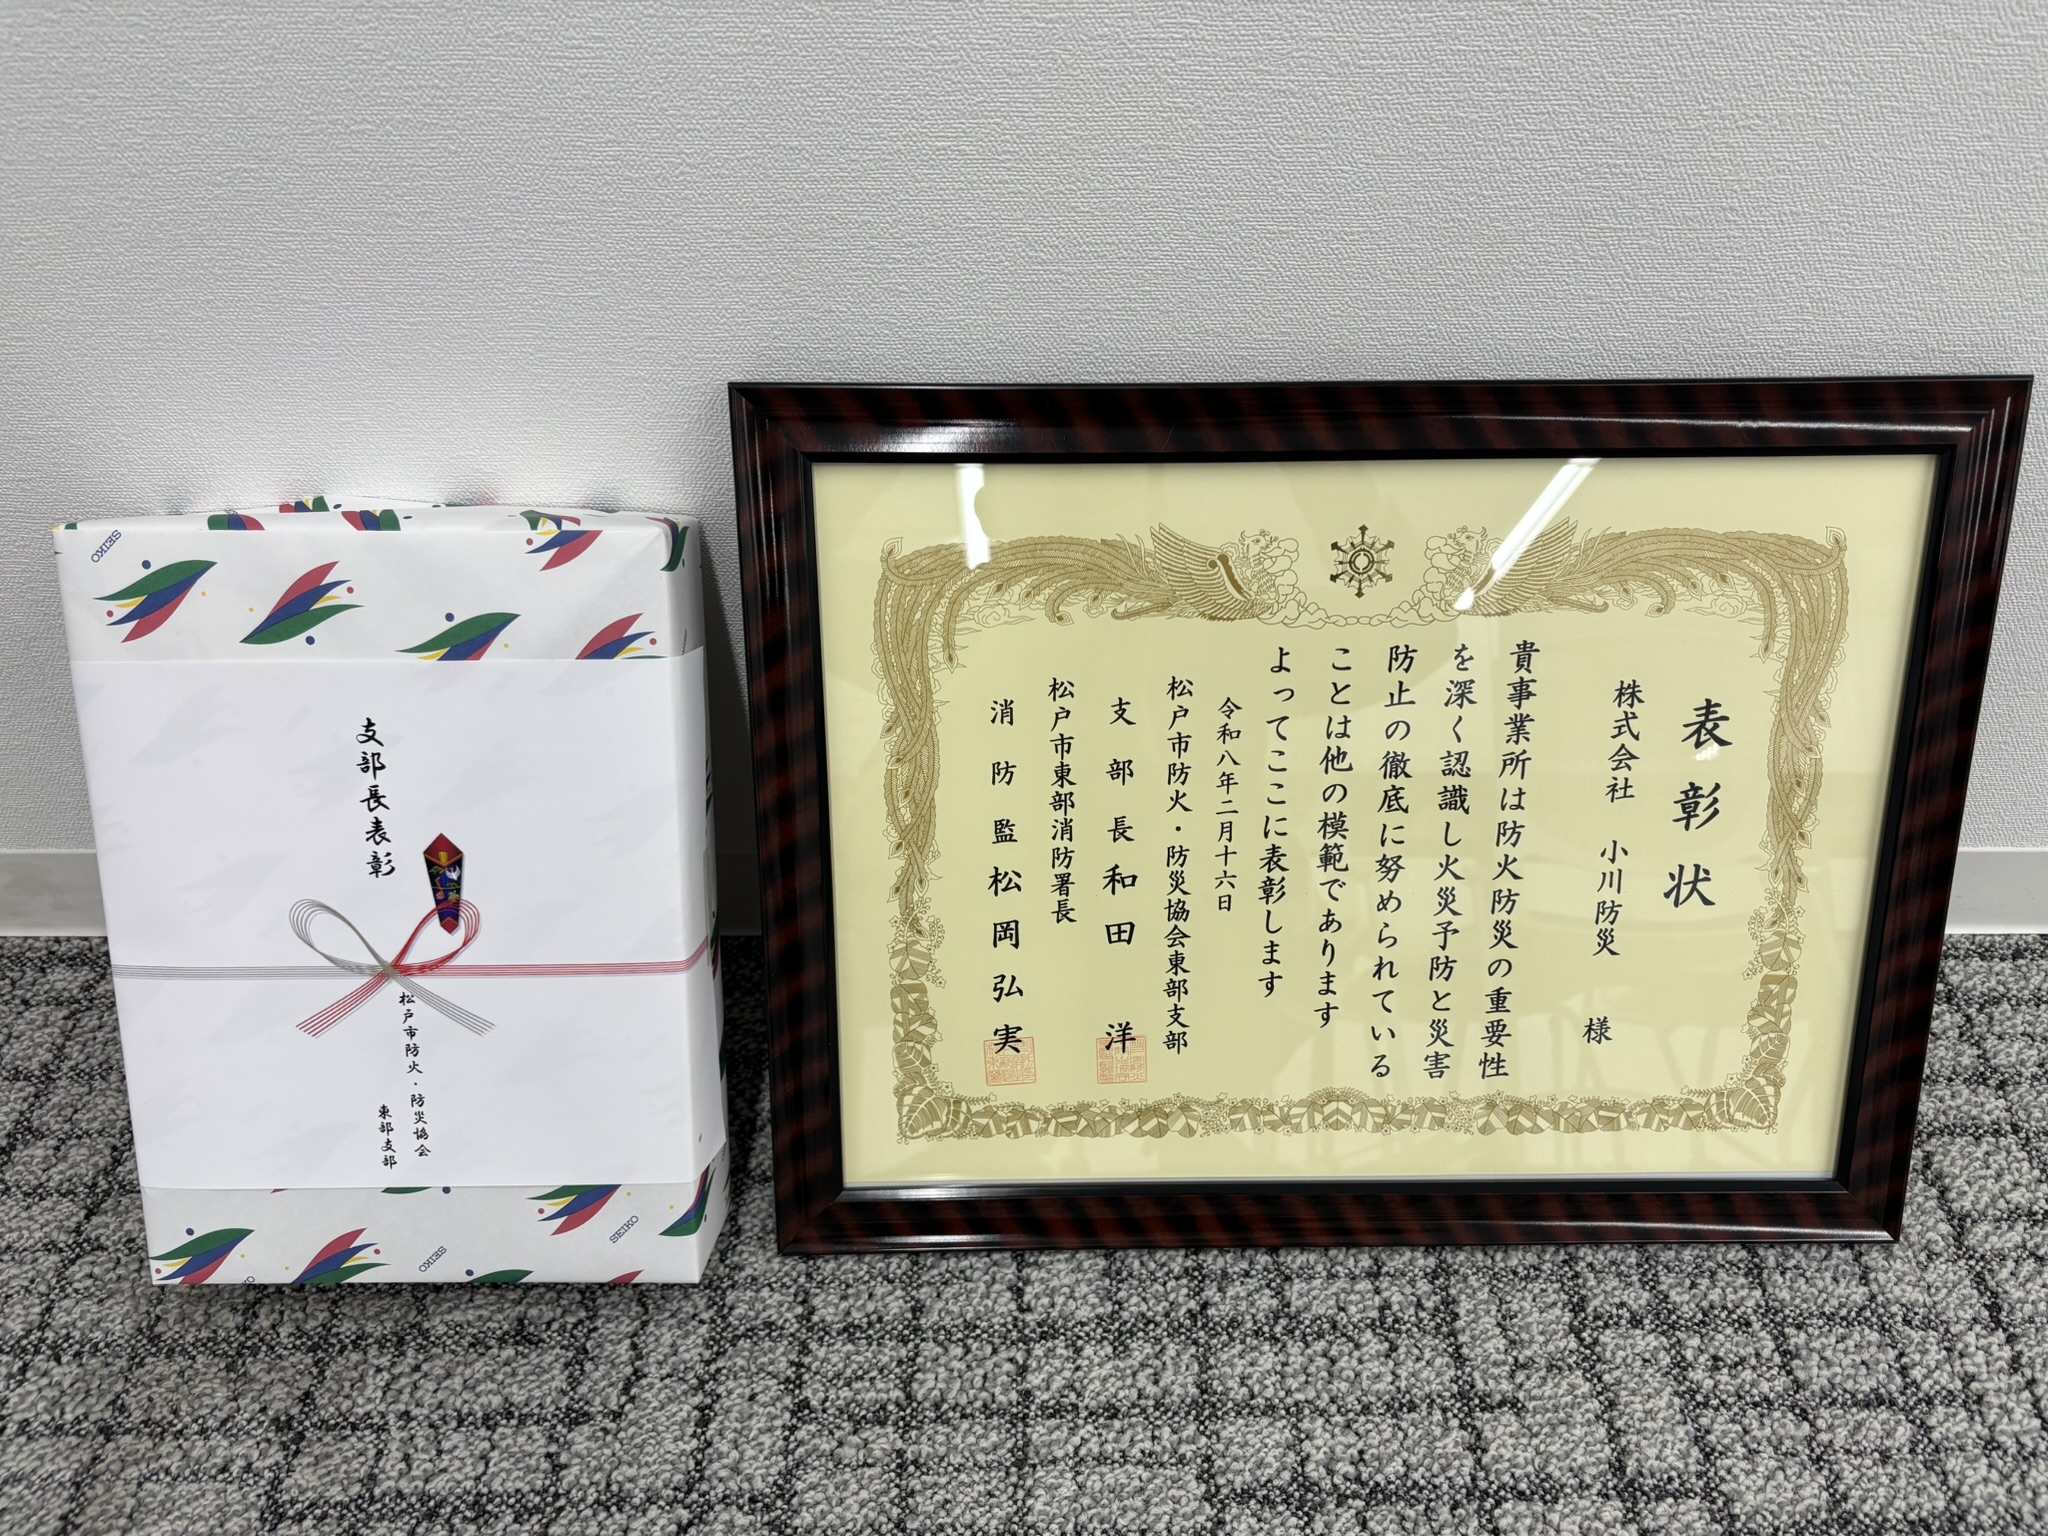 表彰状
株式会社 小川防災 様
貴事業所は防火防災の重要性
を深く認識し火災予防と災害
防止の徹底に努められている
ことは他の模範であります
よってここに表彰します
令和八年二月十六日
松戸市防火・防災協会東部支部
支部長 和田 洋
松戸市東部消防署長
消防監 松岡弘実
支部長表彰
松戸市防火・防災協会
東部支部
SEIKO
SEIKO
SEIKO